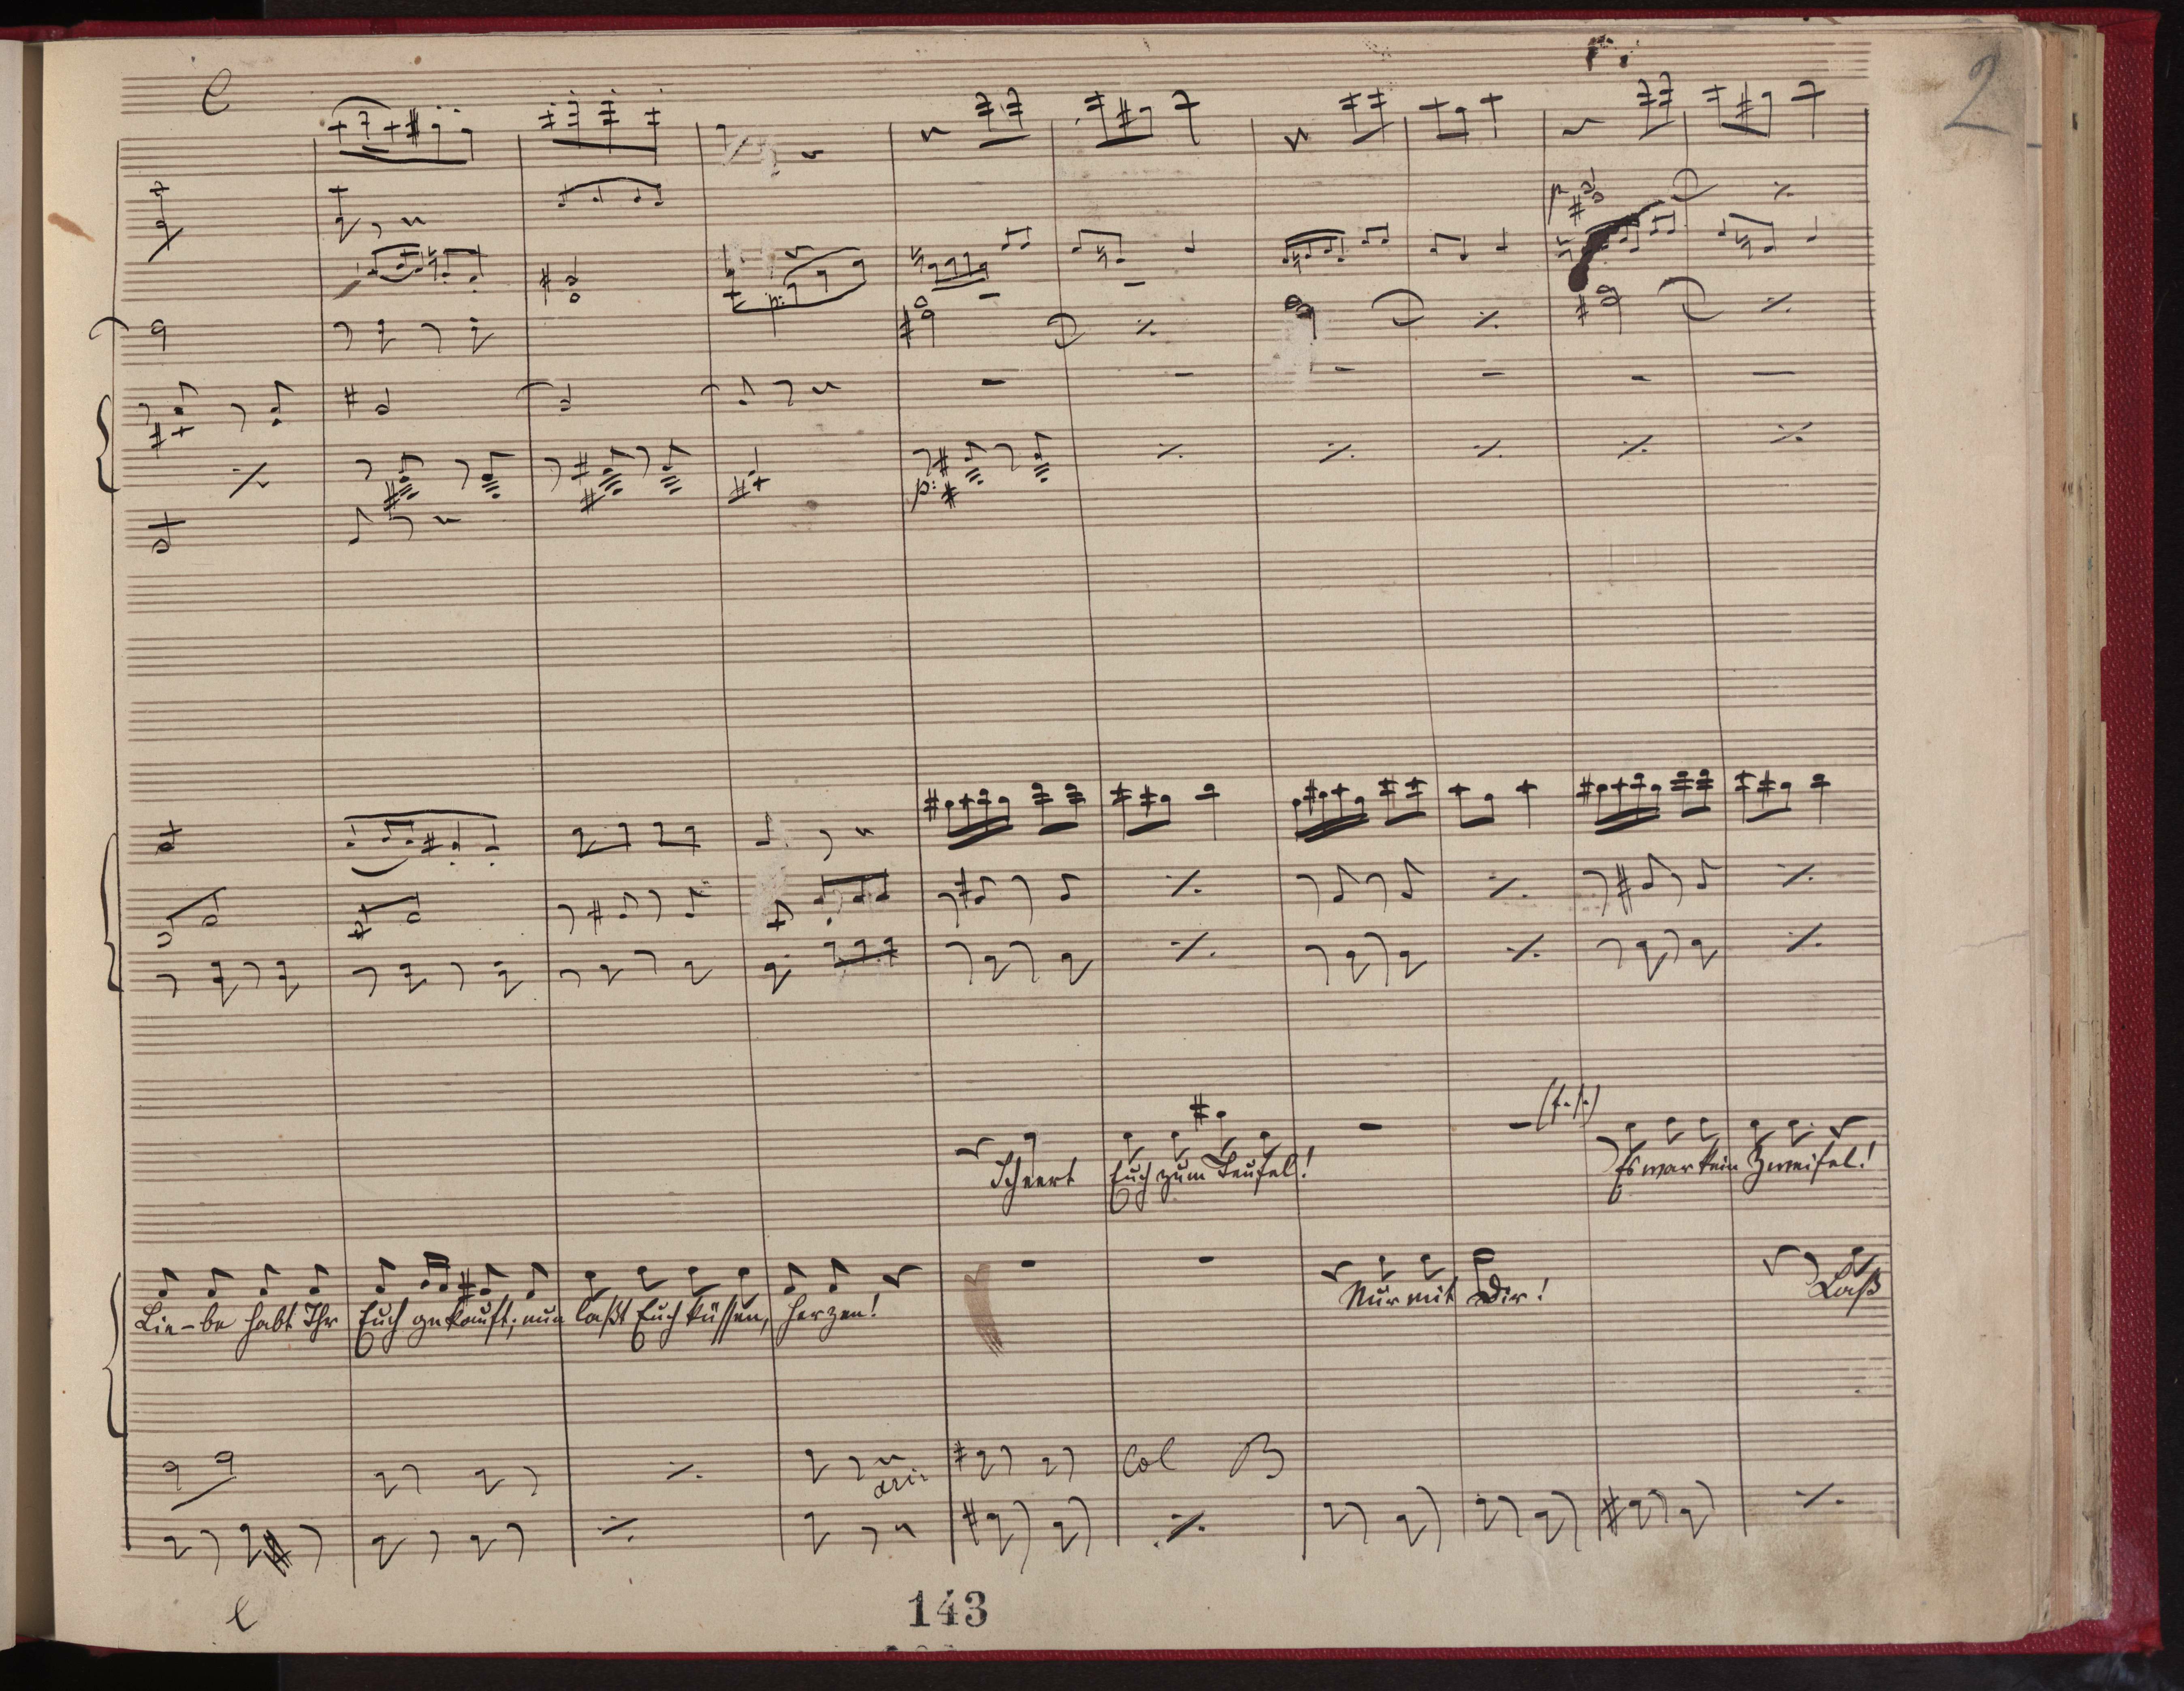 e
2
p
p:
p:
(f. f.)
Scheert Euch zum Teufel!
Es war kein Zweifel!
Lie-be habt Ihr Euch gekauft; nun laßt Euch küssen, herzen!
Nur mit Dir!
Laß
Col B
e
143